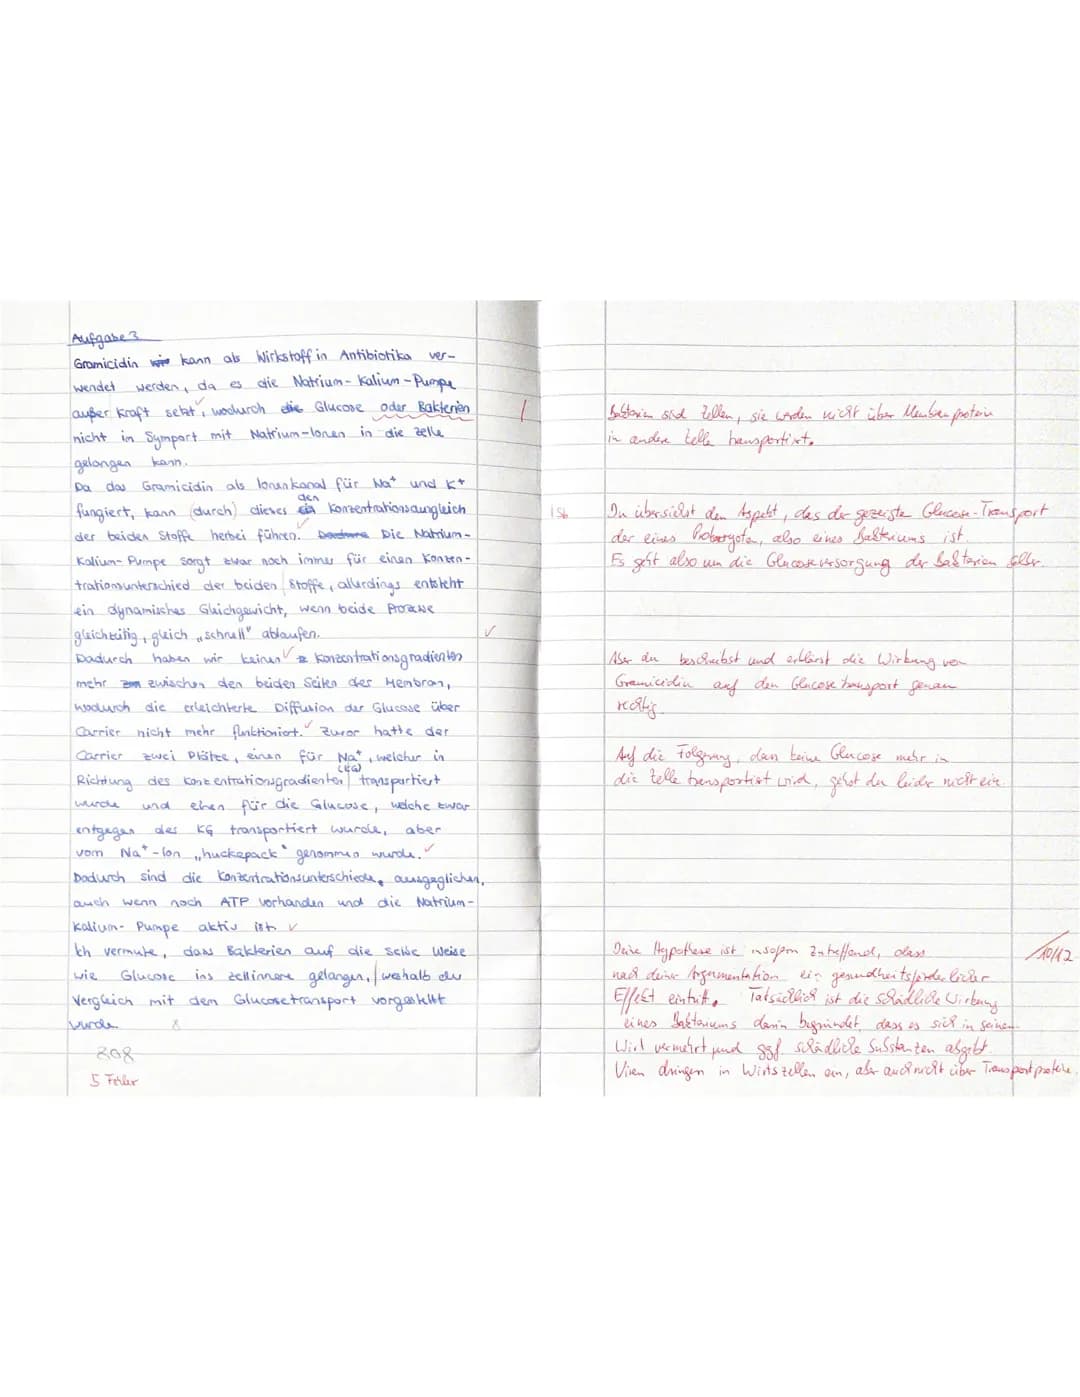 Aufgabe 3
Gramicidin wie kann als Wirkstoff in Antibiotika ver-
wendet werden, da es die Natrium-Kalium-Pumpe
außer Kraft setzt, wodurch die Glucose oder Bakterien
nicht in Symport mit Natrium-Ionen in die Zelle
gelangen kann.
Da das Gramicidin als Ionenkanal für Na+ und K+
den
fungiert, kann (durch) dieses Konzentrationsausgleich
der beiden Stoffe herbei führen. Dadurch Die Natrium-
Kalium-Pumpe sorgt zwar noch immer für einen Konzen-
trationsunterschied der beiden Stoffe, allerdings entsteht
ein dynamisches Gleichgewicht, wenn beide Prozesse
gleichzeitig, gleich „schnell" ablaufen.
Dadurch haben wir keinen Konzentrationsgradienten
mehr zwischen den beiden Seiten der Membran,
wodurch die erleichterte Diffusion der Glucose über
Carrier nicht mehr funktioniert. Zuvor hatte der
Carrier zwei Plätze, einen für Na+, welcher in
(KG)
Richtung des Konzentrationsgradienten transportiert
wurde und einen für die Glucose, welche zwar
entgegen des KG transportiert wurde, aber
vom Na+-Ion „huckepack" genommen wurde.
Dadurch sind die Konzentrationsunterschiede ausgeglichen,
auch wenn noch ATP vorhanden und die Natrium-
Kalium-Pumpe aktiv ist.
Ich vermute, dass Bakterien auf die selbe Weise
wie Glucose ins Zellinnere gelangen, weshalb der
Vergleich mit dem Glucosetransport vorgestellt
wurde
308
5 Fehler
Bakterien sind Zellen, sie werden nicht über Membranprotein
in andere Zelle transportiert.
Du übersiehst den Aspekt, das der gezeigte Glucose-Transport
der eines Prokaryoten, also eines Bakteriums ist.
Es geht also um die Glucoseversorgung der Bakterien selbst.
Aber du beschreibst und erklärst die Wirkung von
Gramicidin auf den Glucosetransport genau
richtig.
Auf die Folgerung, dass keine Glucose mehr in
die Zelle transportiert wird, gehst du leider nicht ein.
10/12
Deine Hypothese ist insofern zutreffend, dass
nach deiner Argumentation ein gesundheitsförderlicher
Effekt eintritt. Tatsächlich ist die schädliche Wirkung
eines Bakteriums darin begründet, dass es sich in seinem
Wirt vermehrt und ggf. schädliche Substanzen abgibt.
Viren dringen in Wirtszellen ein, aber auch nicht über Transportproteine.